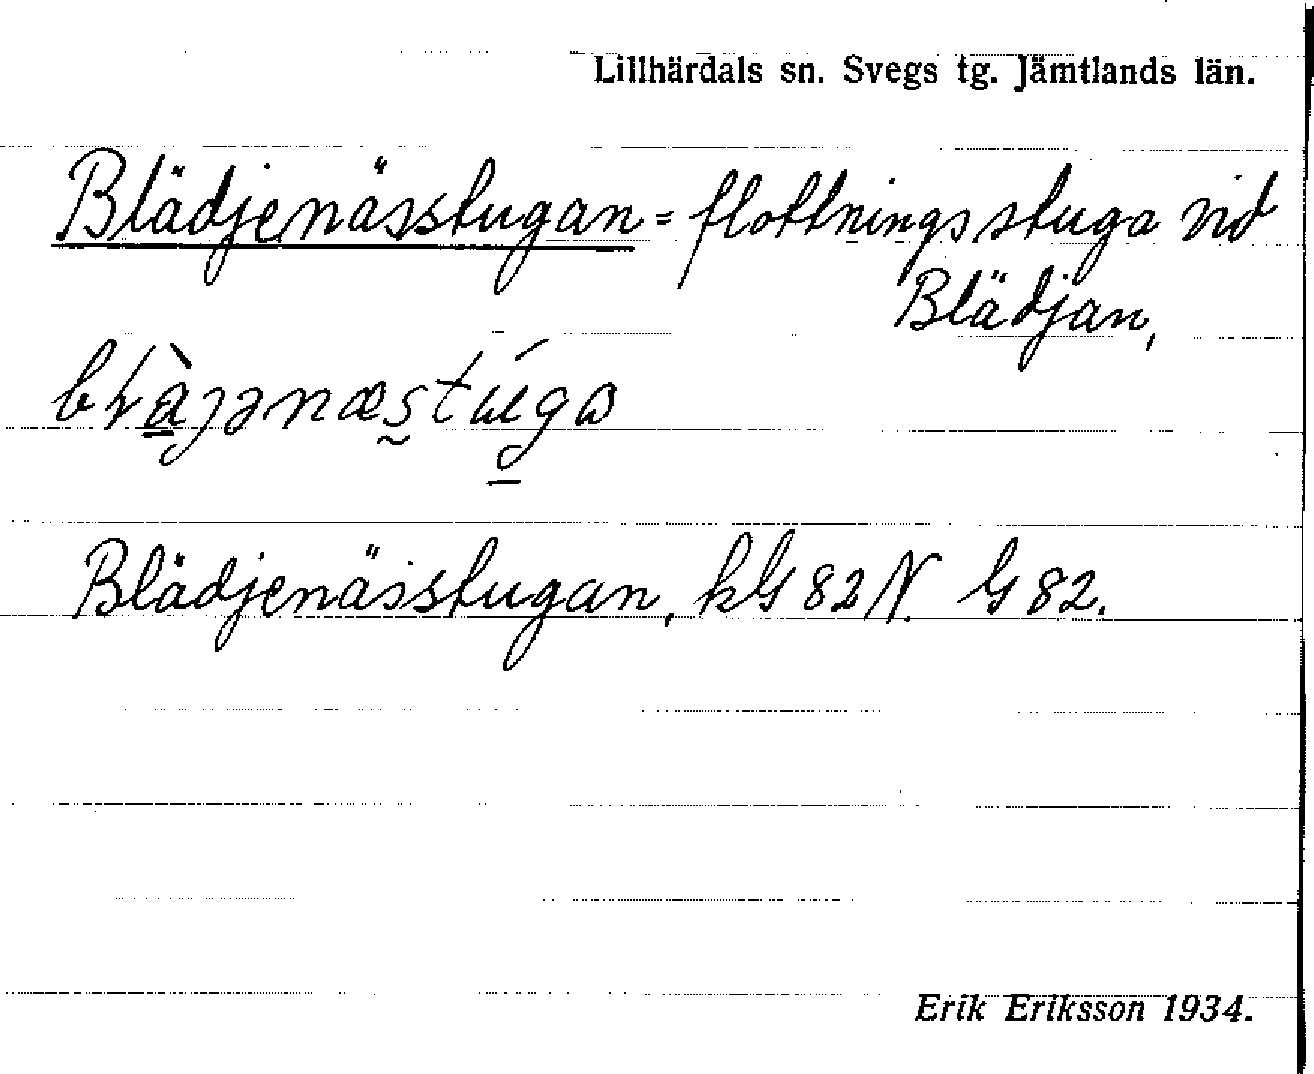 Lillhärdals sn. Svegs tg. Jämtlands län.
Blädjenässtugan = flottningsstuga vid
Blädjan,
Blädjenässtugan, kG 82 N. G 82.
Erik Eriksson 1934.